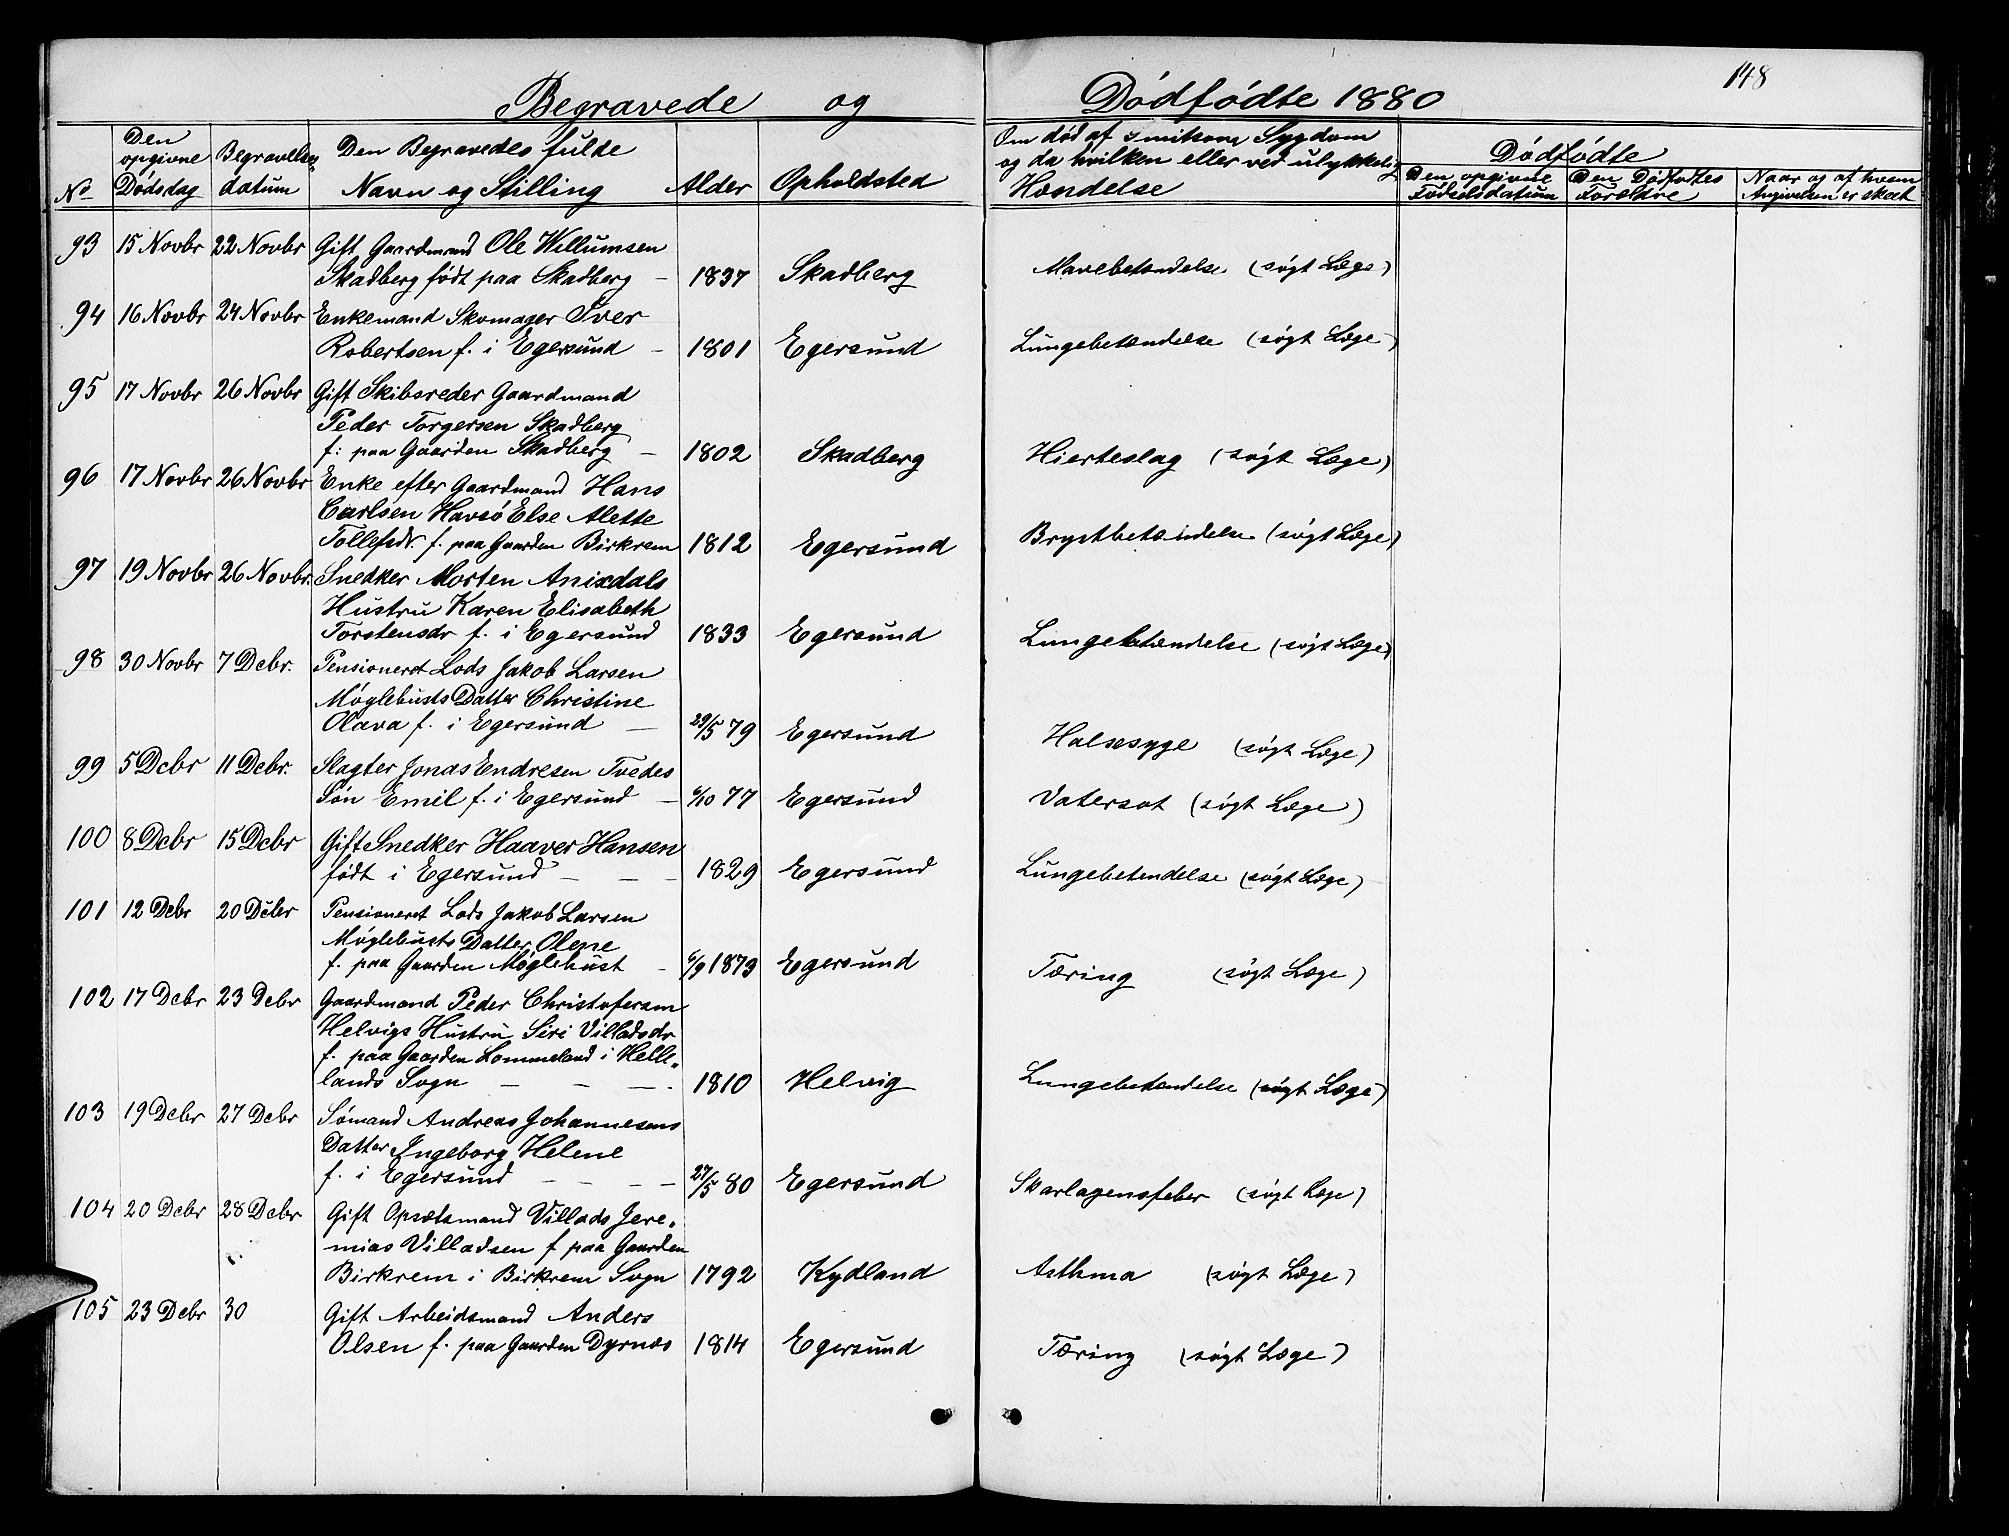 148
Begravede og Dødfødte 1880
No
Den opgivne Dødsdag
Begravelses datum
Den Begravedes fulde Navn og Stilling
Alder
Opholdsted
Om død af smitsom Sygdom
og da hvilken eller ved ulykkelig
Hændelse
Dødfødte
Den opgivne Fødselsdatum
Den Dødfødtes Forældre
Naar og af hvem Angivelsen er skeet
93 15 Novbr 22 Novbr Gift Gaardmand Ole Willumsen
Skadberg født paa Skadberg – 1837 Skadberg Mavebetændelse (søgt Læge)
94 16 Novbr 24 Novbr Enkemand Skomager Iver
Robertsen f. i Egersund – 1801 Egersund Lungebetændelse (søgt Læge)
95 17 Novbr 26 Novbr Gift Skibsreder Gaardmand
Peder Torgersen Skadberg
f: paa Gaarden Skadberg – 1802 Skadberg Hierteslag (søgt Læge)
96 17 Novbr 26 Novbr Enke efter Gaardmand Hans
Carlsen Havsö Else Alette
Tollefsdr. f. paa Gaarden Birkrem 1812 Egersund Brystbetændelse (søgt Læge)
97 19 Novbr 26 Novbr. Snedker Morten Anixdals
Hustru Karen Elisabeth
Torstensdr f. i Egersund 1833 Egersund Lungebetændelse (søgt Læge)
98 30 Novbr 7 Debr. Pensioneret Lods Jakob Larsen
Møglebusts Datter Christine
Olava f. i Egersund – 29/5 79 Egersund Halsesyge (søgt Læge)
99 5 Debr 11 Debr. Slagter Jonas Endresen Tvedes
Søn Emil f. i Egersund – 6/10 77 Egersund Vatersot (søgt Læge)
100 8 Debr 15 Debr Gift Snedker Haaver Hansen
født i Egersund – – – 1829 Egersund Lungebetendelse (søgt Læge)
101 12 Debr 20 Debr Pensioneret Lods Jakob Larsen
Møglebusts Datter Olene
f. paa Gaarden Møglebust – 6/9 1879 Egersund Tæring (søgt Læge)
102 17 Debr 23 Debr Gaardmand Peder Christofersen
Helvigs Hustru Siri Villadsdr
f. paa Gaarden Lommeland i Helle„
lands Sogn – – – 1810 Helvig Lungebetændelse (søgt Læge)
103 19 Debr 27 Debr Sømand Andreas Johannesens
Datter Ingeborg Helene
f. i Egersund – – – – 27/5 80 Egersund Skarlagensfeber (søgt Læge)
104 20 Debr 28 Debr Gift Opsætsmand Villads Jere„
mias Villadsen f paa Gaarden
Birkrem i Birkrem Sogn 1792 Kydland Asthma (søgt Læge)
105 23 Debr 30 Gift Arbeidsmand Anders
Olsen f. paa Gaarden Dyrnæs 1814 Egersund Tæring (søgt Læge)